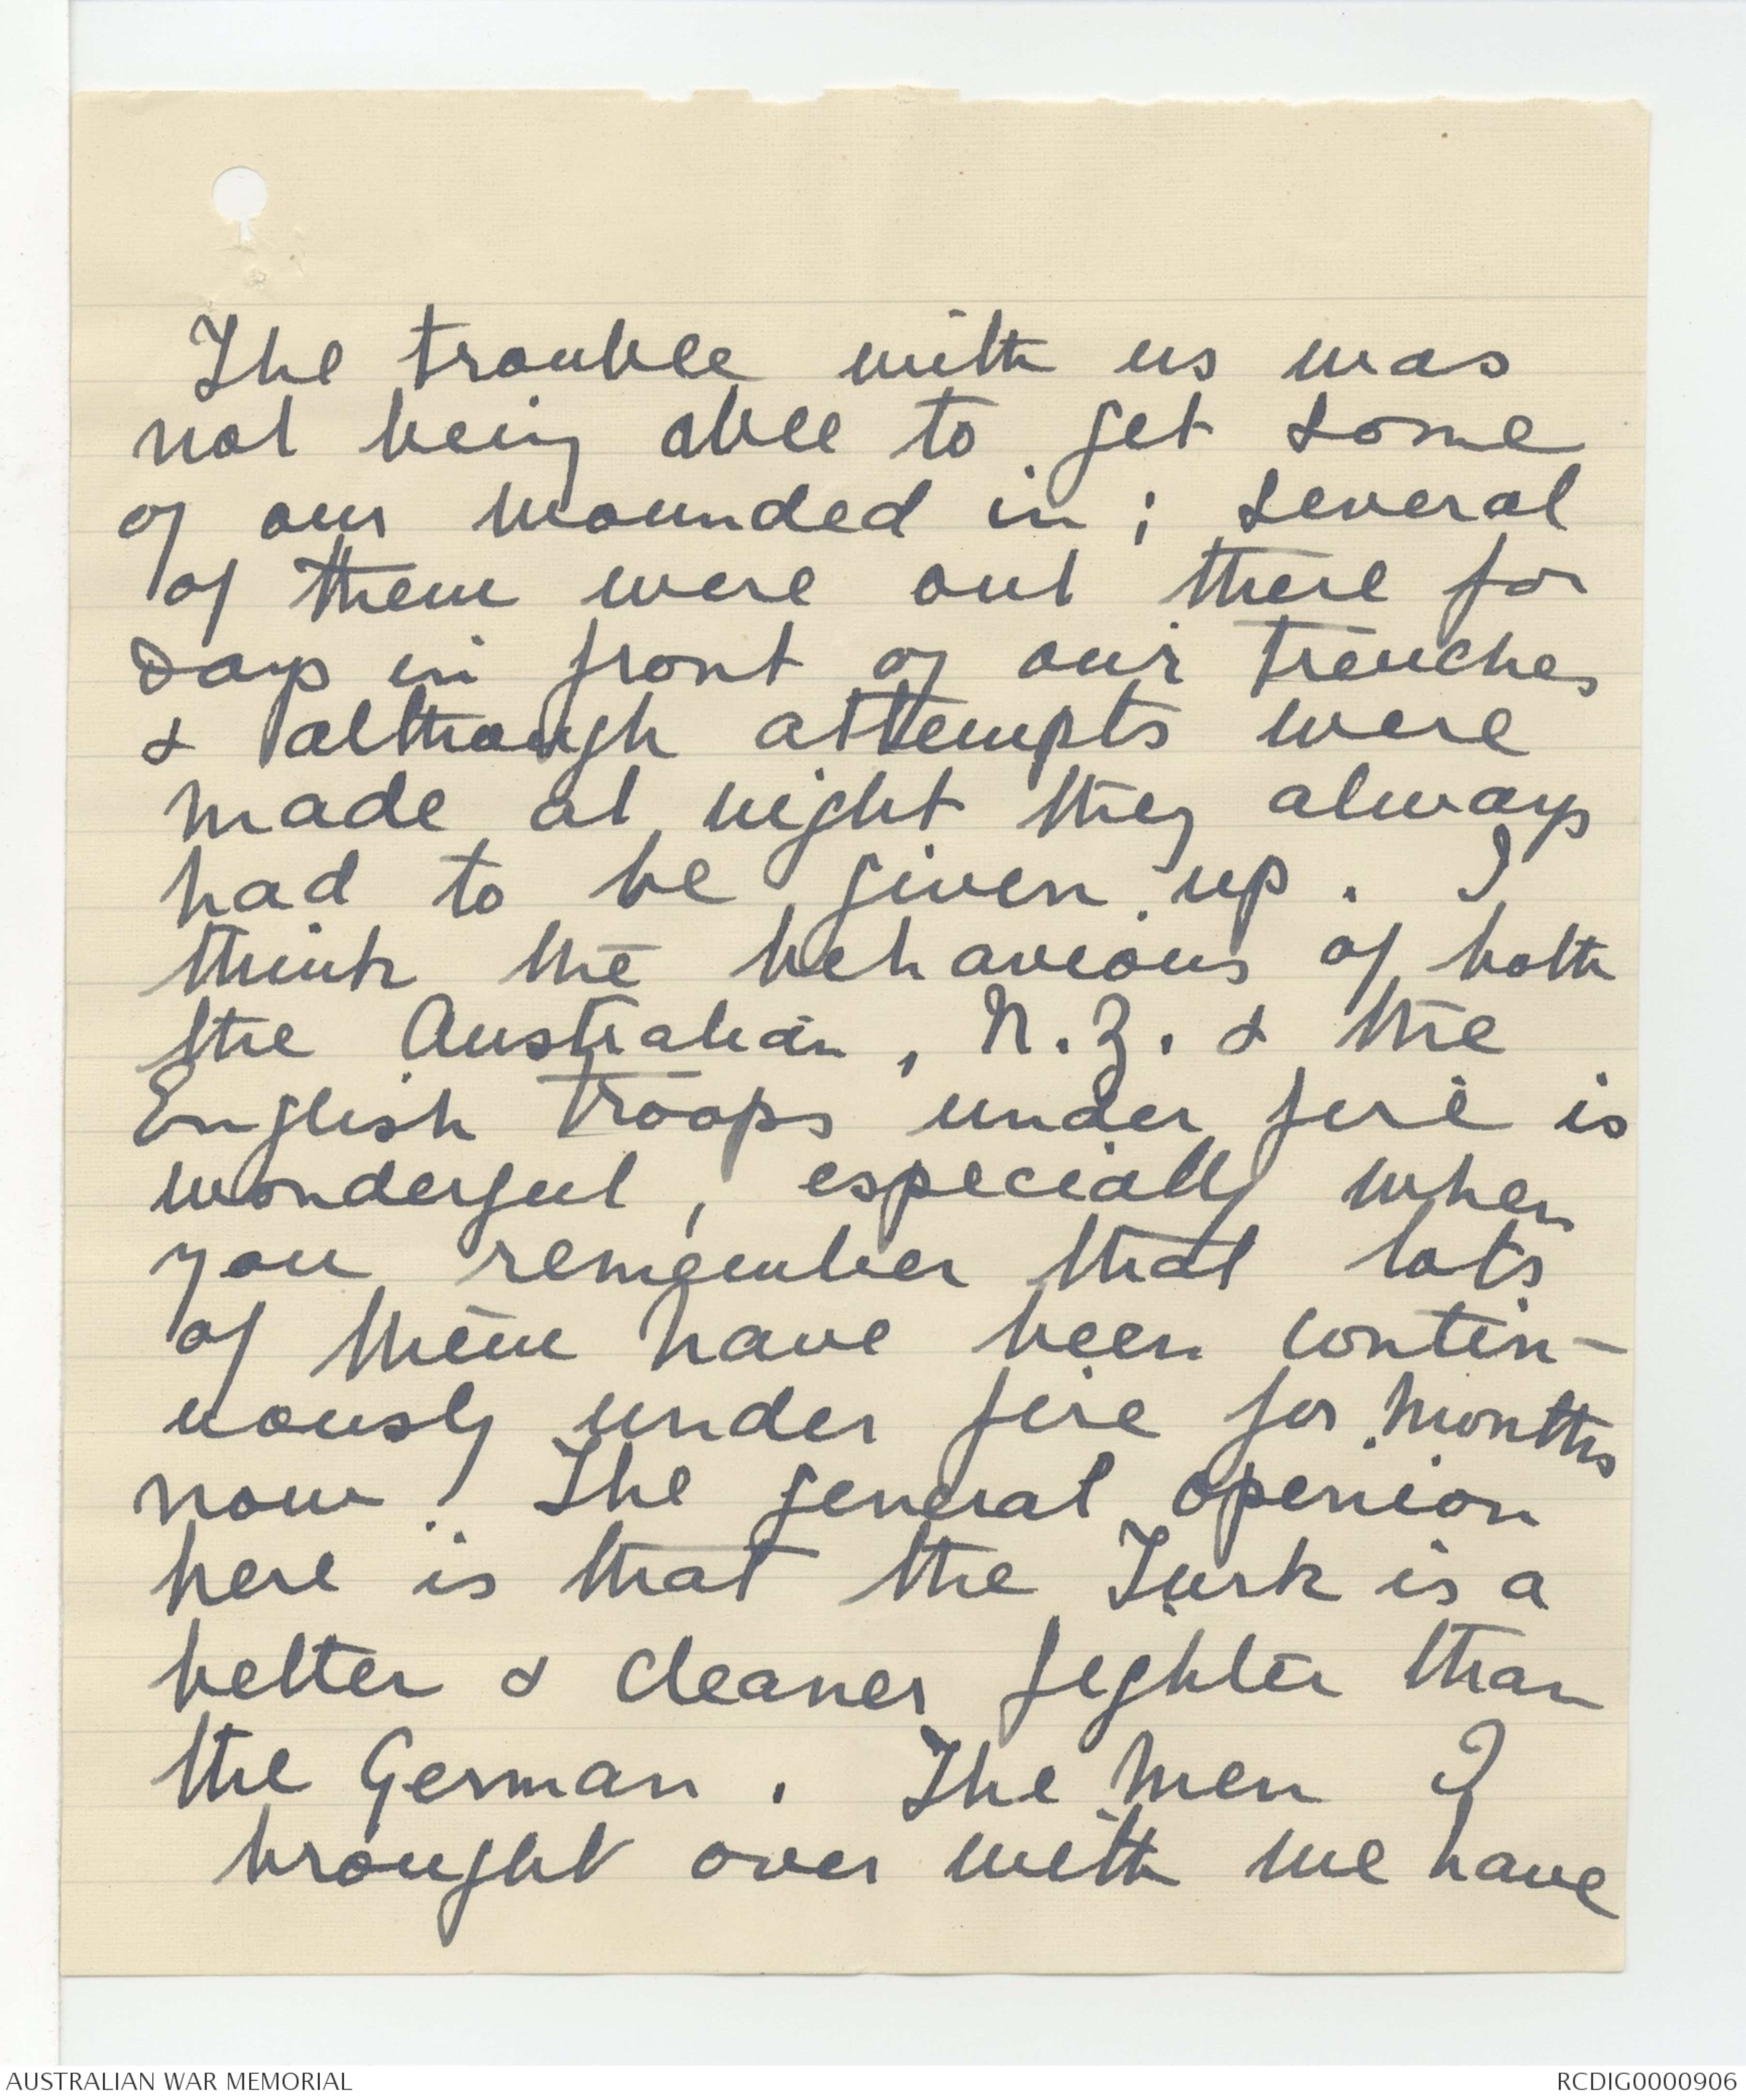 The trouble with us was
not being able to get some
of our wounded in; several
of them were out there for
days in front of our trenches
& although attempts were
made at night they always
had to be given up. I
think the behaviour of both
the Australian, N.Z. & the
English troops under fire is
wonderful, especially when
you remember that lots
of them have been contin-
uously under fire for months
now. The general openion
here is that the Turk is a
better & cleaner fighter than
the German. The men I
brought over with me have
AUSTRALIAN WAR MEMORIAL
RCDIG0000906